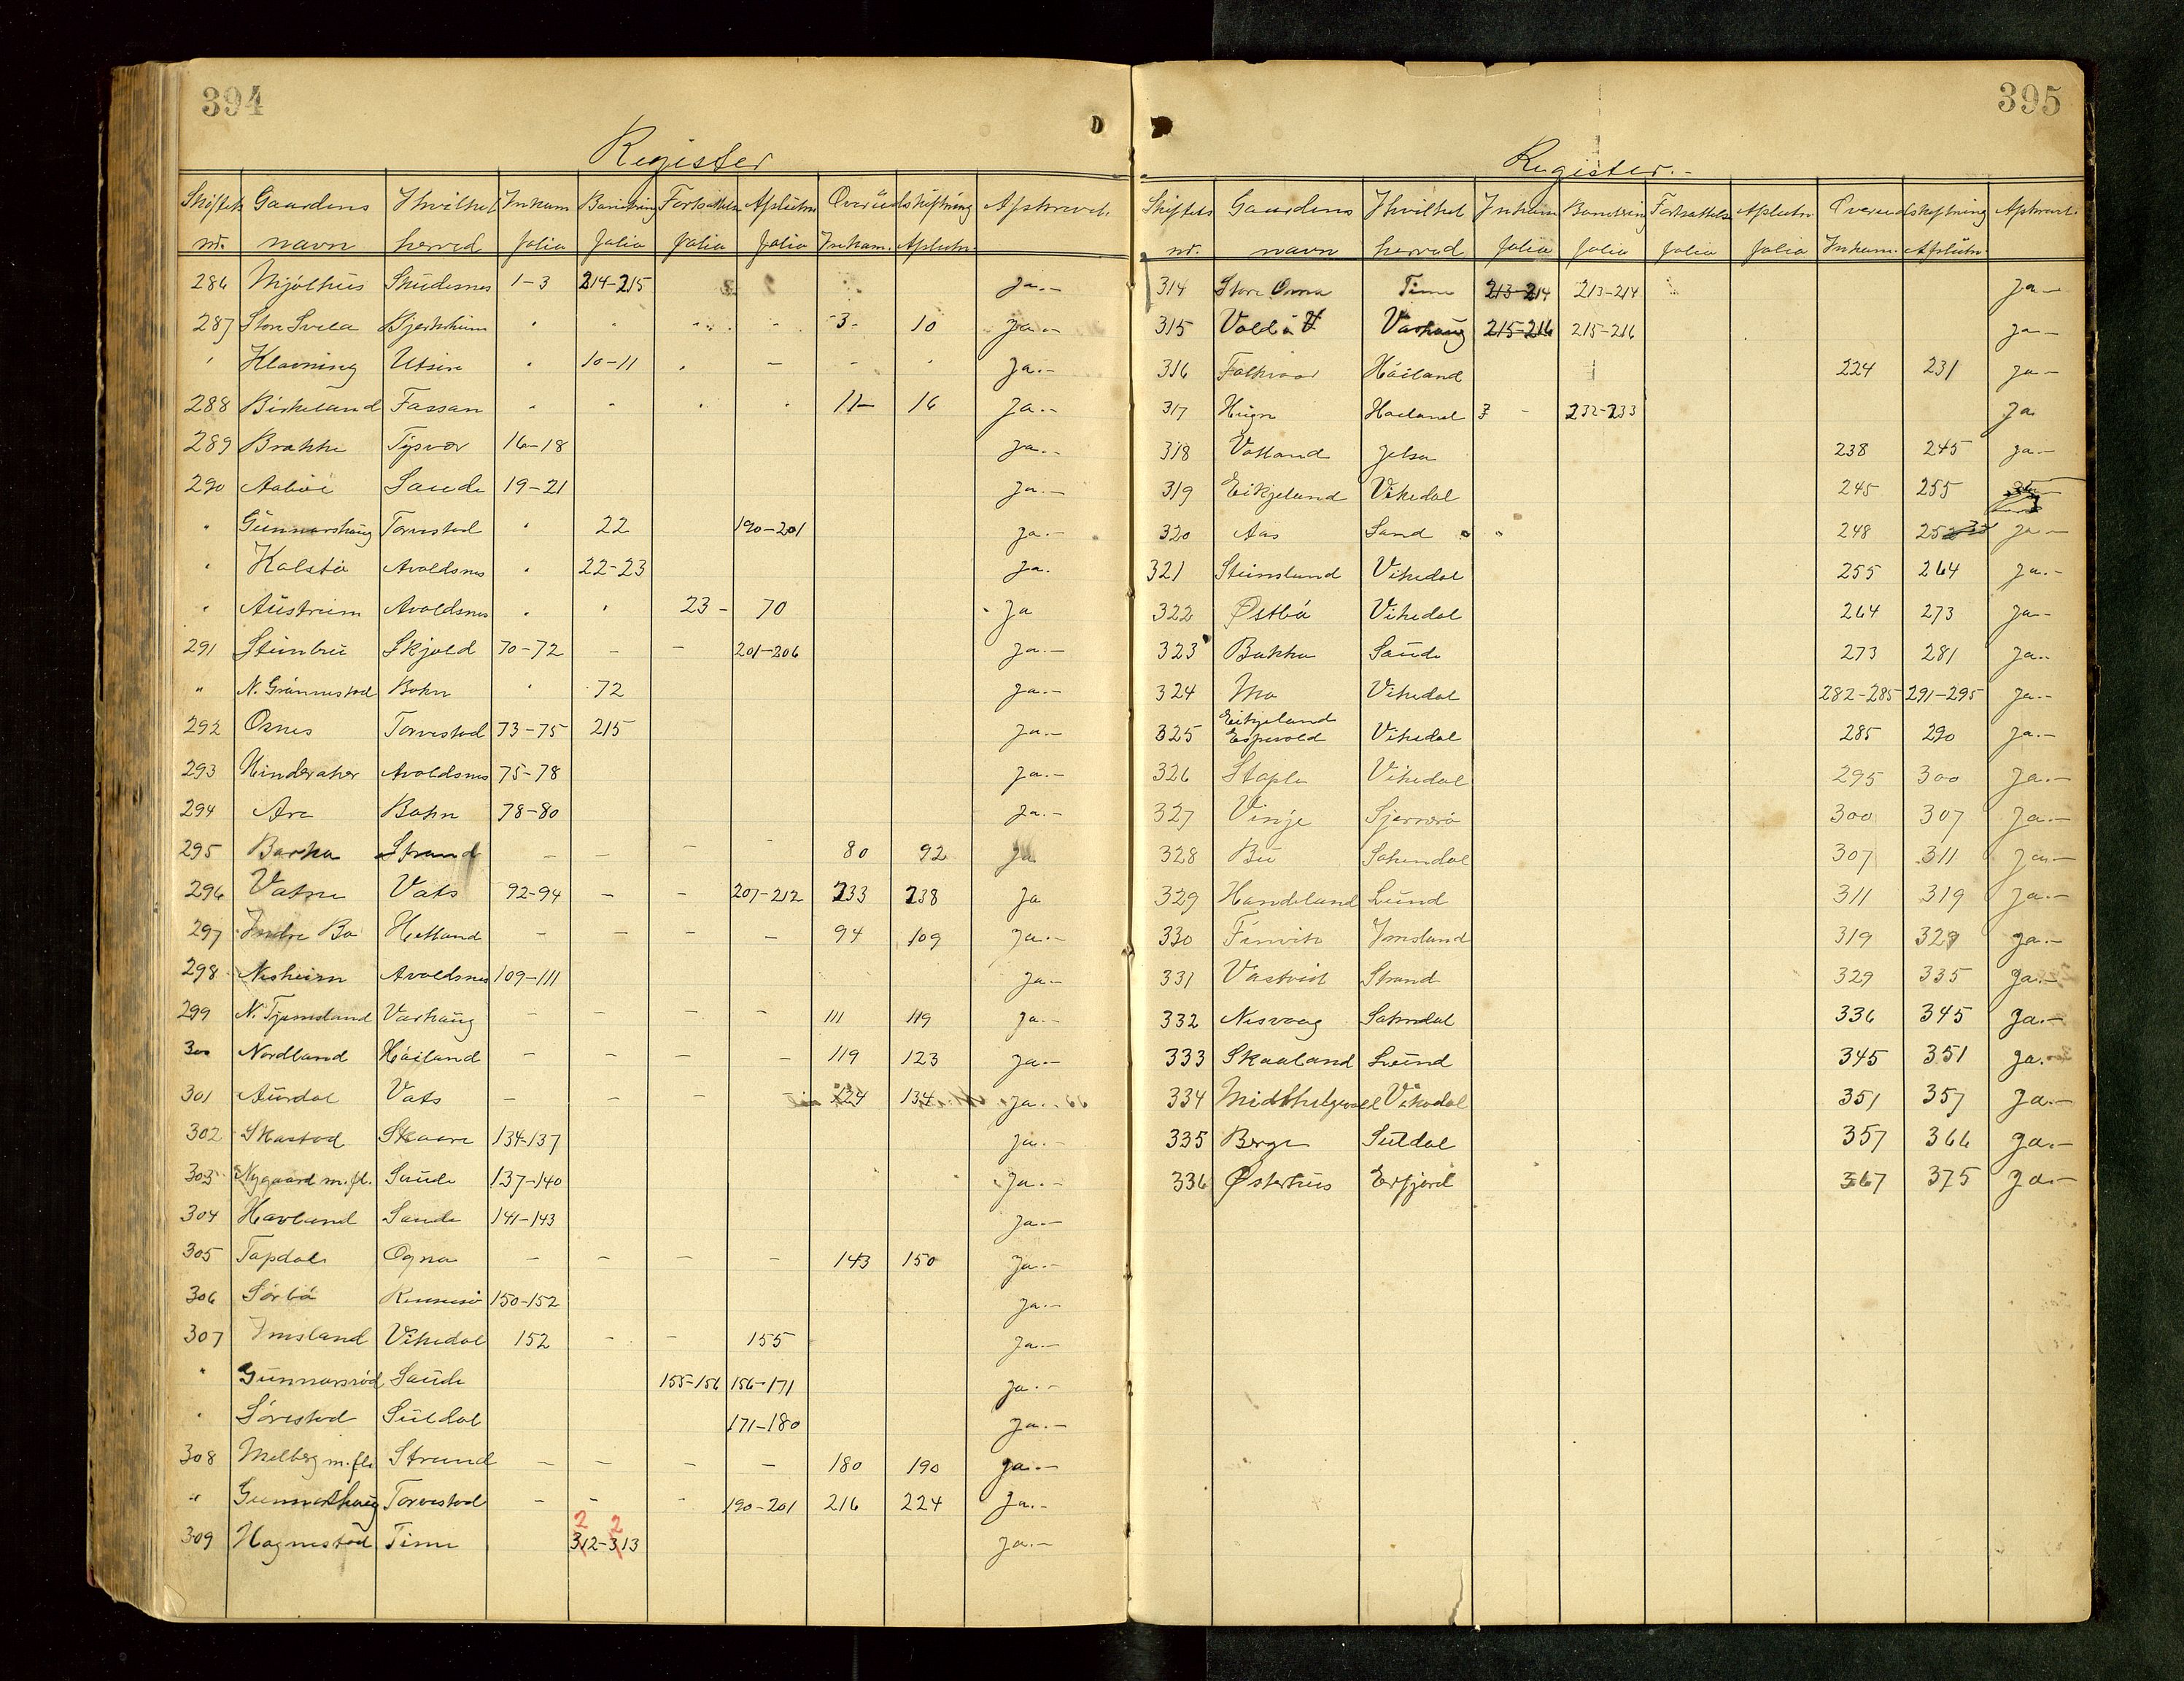 394
Register
Skiftets Gaardens I hvilket Inkam Forksattelse Afslutn. Overudskiftning Afskrevet.
nr. navn herred folio folio folio folio Inkam. Afslutn.
286 Mjølhus Skudesnes 1-3 214-215 ja.-
287 Store Svela Bjerkreim " " " 3- 10 ja.-
" Klovning Utsire " 10-11 . - - " ja.-
288 Birkeland Fassan " " " " 11- 16 ja.-
289 Brakke Tysvær 16-18 ja.-
290 Aabøe Saude 19-21 ja.-
" Gunnarshaug Torvestad " 22 190-201 ja.-
" Kalstø Avaldsnes " 22-23 ja.
" Austreim Avaldsnes " " 23- 70 ja
291 Steinbru Skjold 70-72 - - 201-206 ja.-
" N. Grønnestad Bokn " 72 ja.-
292 Osnes Torvestad 73-75 215 ja.-
293 Hinderaker Avaldsnes 75-78 ja.-
294 Are Bokn 78-80 ja.-
295 Barka Strand - - - - 80 92 ja
296 Vatne Vats 92-94 - - 207-212 233 238 ja
297 Indre Bø Hetland - - - - 94 109 ja.-
298 Nesheim Avaldsnes 109-111 ja.-
299 N. Tjemsland Varhaug - - - - 111 119 ja.-
300 Nordland Håiland - - - - 119 123 ja.-
301 Aurdal Vats - - - - 124 134 ja.-
302 Skastad Skaare 134-137 ja.-
303 Nygaard m.fl. Saude 137-140 ja.-
304 Havland Saude 141-143 ja.-
305 Tapdal Ogna - - - - 143 150 ja.-
306 Sørbø Rennesø 150-152 ja.-
307 Imsland Vikedal 152 - - 155 ja.-
" Gunnarsrød Saude 155-156 156-171 ja.-
" Sørestad Suldal 171-180 ja.-
308 Melberg m.fl. Strand - - - - 180 190 ja.-
" Gunnarshaug Torvestad - - - 190-201 216 224 ja.-
2 2
309 Hognestad Time 312-313 ja.-
395
Register.-
Skiftets Gaardens I hvilket Inkam Bonitering Fortsattelse Afslutn Overudskiftning Afskrevet.
nr. navn herred folio folio folio folio Inkam. Afslutn.
314 Store Oma Time 213-214 213-214 ja-
315 Varhaug 215-216 215-216 ja-
316 Håiland 224 231 ja-
317 Haaland - 232-233 ja
318 Vatland Jelsa 238 245 ja-
319 Eikjeland Vikedal 245 255
320 Aas Sand " " 248 ja-
321 Steinsland Vikedal 255 264 ja.-
322 Østbø Vikedal 264 273 ja-
323 Bakka Saude 273 281 ja..
324 Mo Vikedal 282-285 291-295 ja.-
Eikjeland
325 Espevold Vikedal 285 290 ja.-
326 Stople Vikedal 295 300 ja.-
327 Vinje Sjernerø 300 307 ja.-
328 Bu Sokndal 307 311 ja.-
329 Handeland Lund 311 319 ja.-
330 Finvik Imsland 319 329 ja.-
331 Vastveit Strand 329 335 ja.-
332 Nesvaag Sokndal 336 345 ja.-
333 Skaaland Lund 345 351 ja.-
334 Midthelgevold Vikedal 351 357 ja.-
335 Berge Suldal 357 366 ja.-
336 Østerhus Erfjord 367 375 ja.-